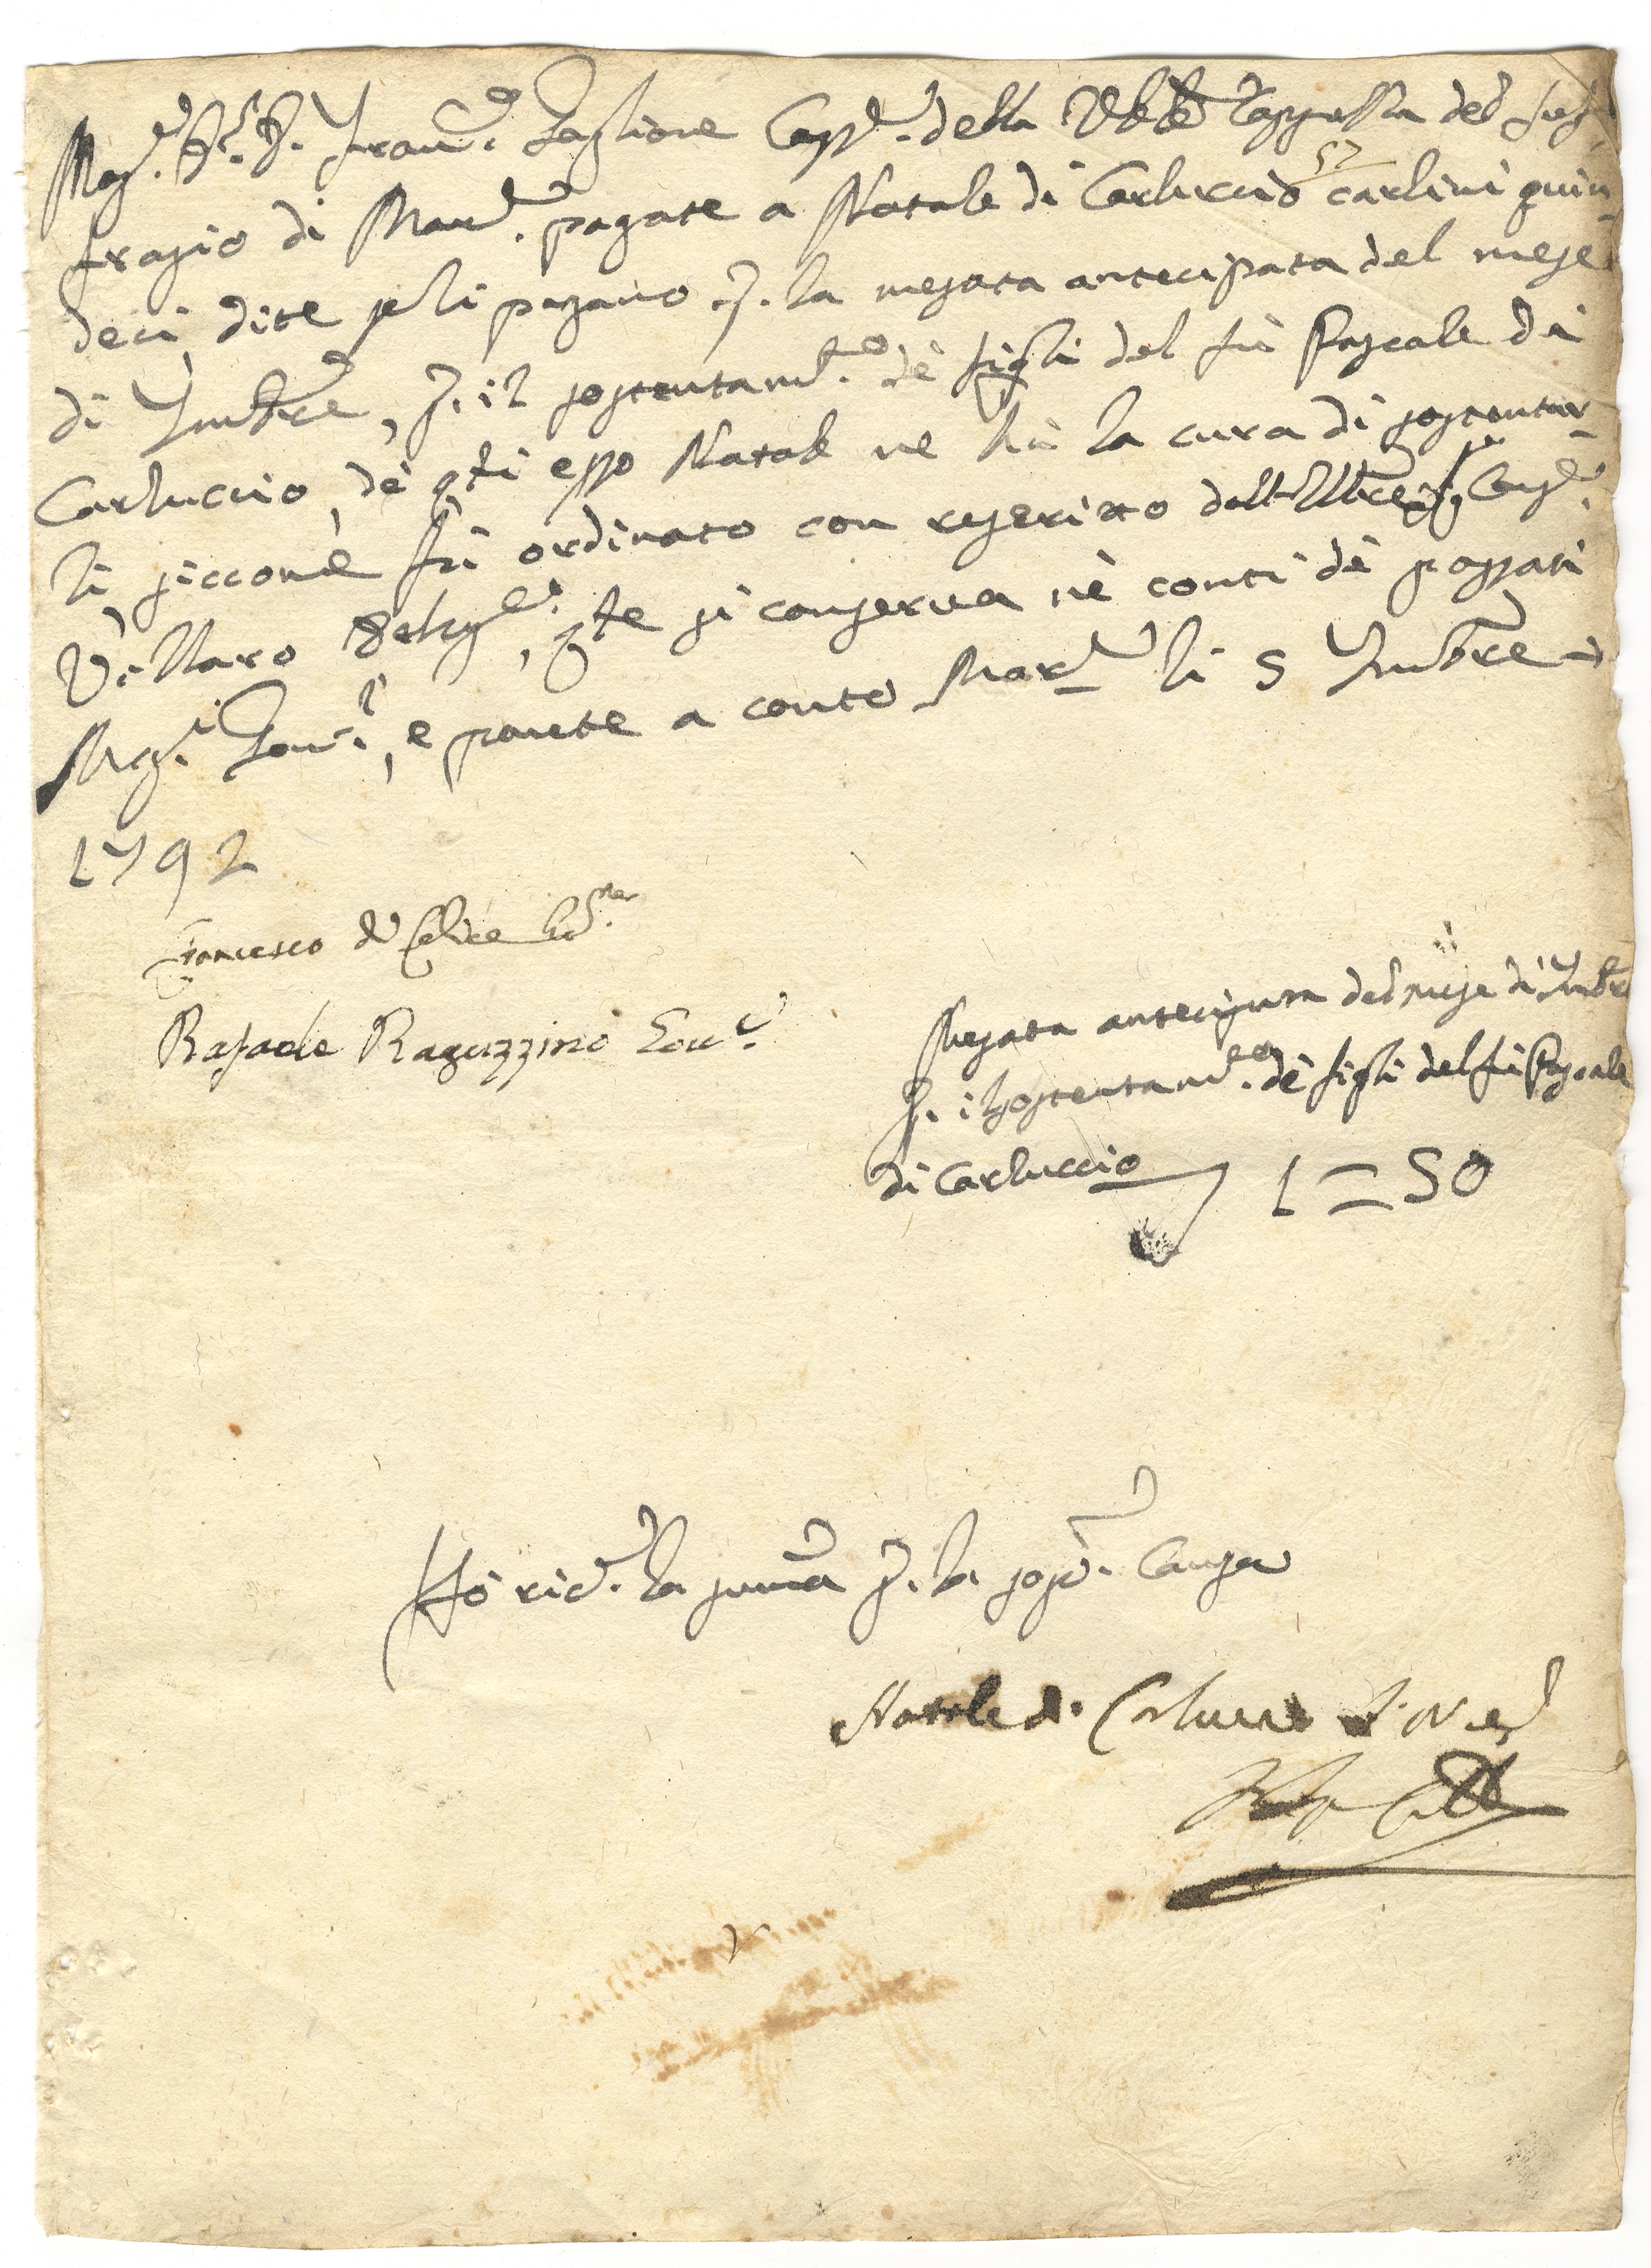 Mag.co Sr. D. Fran.co Taglione Capp.no della Ven.le Cappella del Suf
fragio di Mard.e pagate a Natale di Carluccio carlini quin
deci, dite se li pagano p. la mesata antecipata del mese
di 7mbre, p. il sostentam.to de figli del fù Pascale di
Carluccio, de q.ti esso Natale ne hà la cura di sostentar
li siccome fù ordinato con rescritto dall' Ill.re Consig.re
Villaro Deleg.to, q.le si conserva ne conti de passati
Mag.ci Gov.ri, e ponete a conto Mar.d li 5 7mbre
1792
Francesco di Felice Go.re
Rafaele Raguzzino Gov.re
Mesata antecipata del mese di 7mbre
p. il sostentam.to de figli del fù Pascale
di Carluccio 1=50
Hò ric.to la summa p. la sop.a Causa
Natale di Carlucci